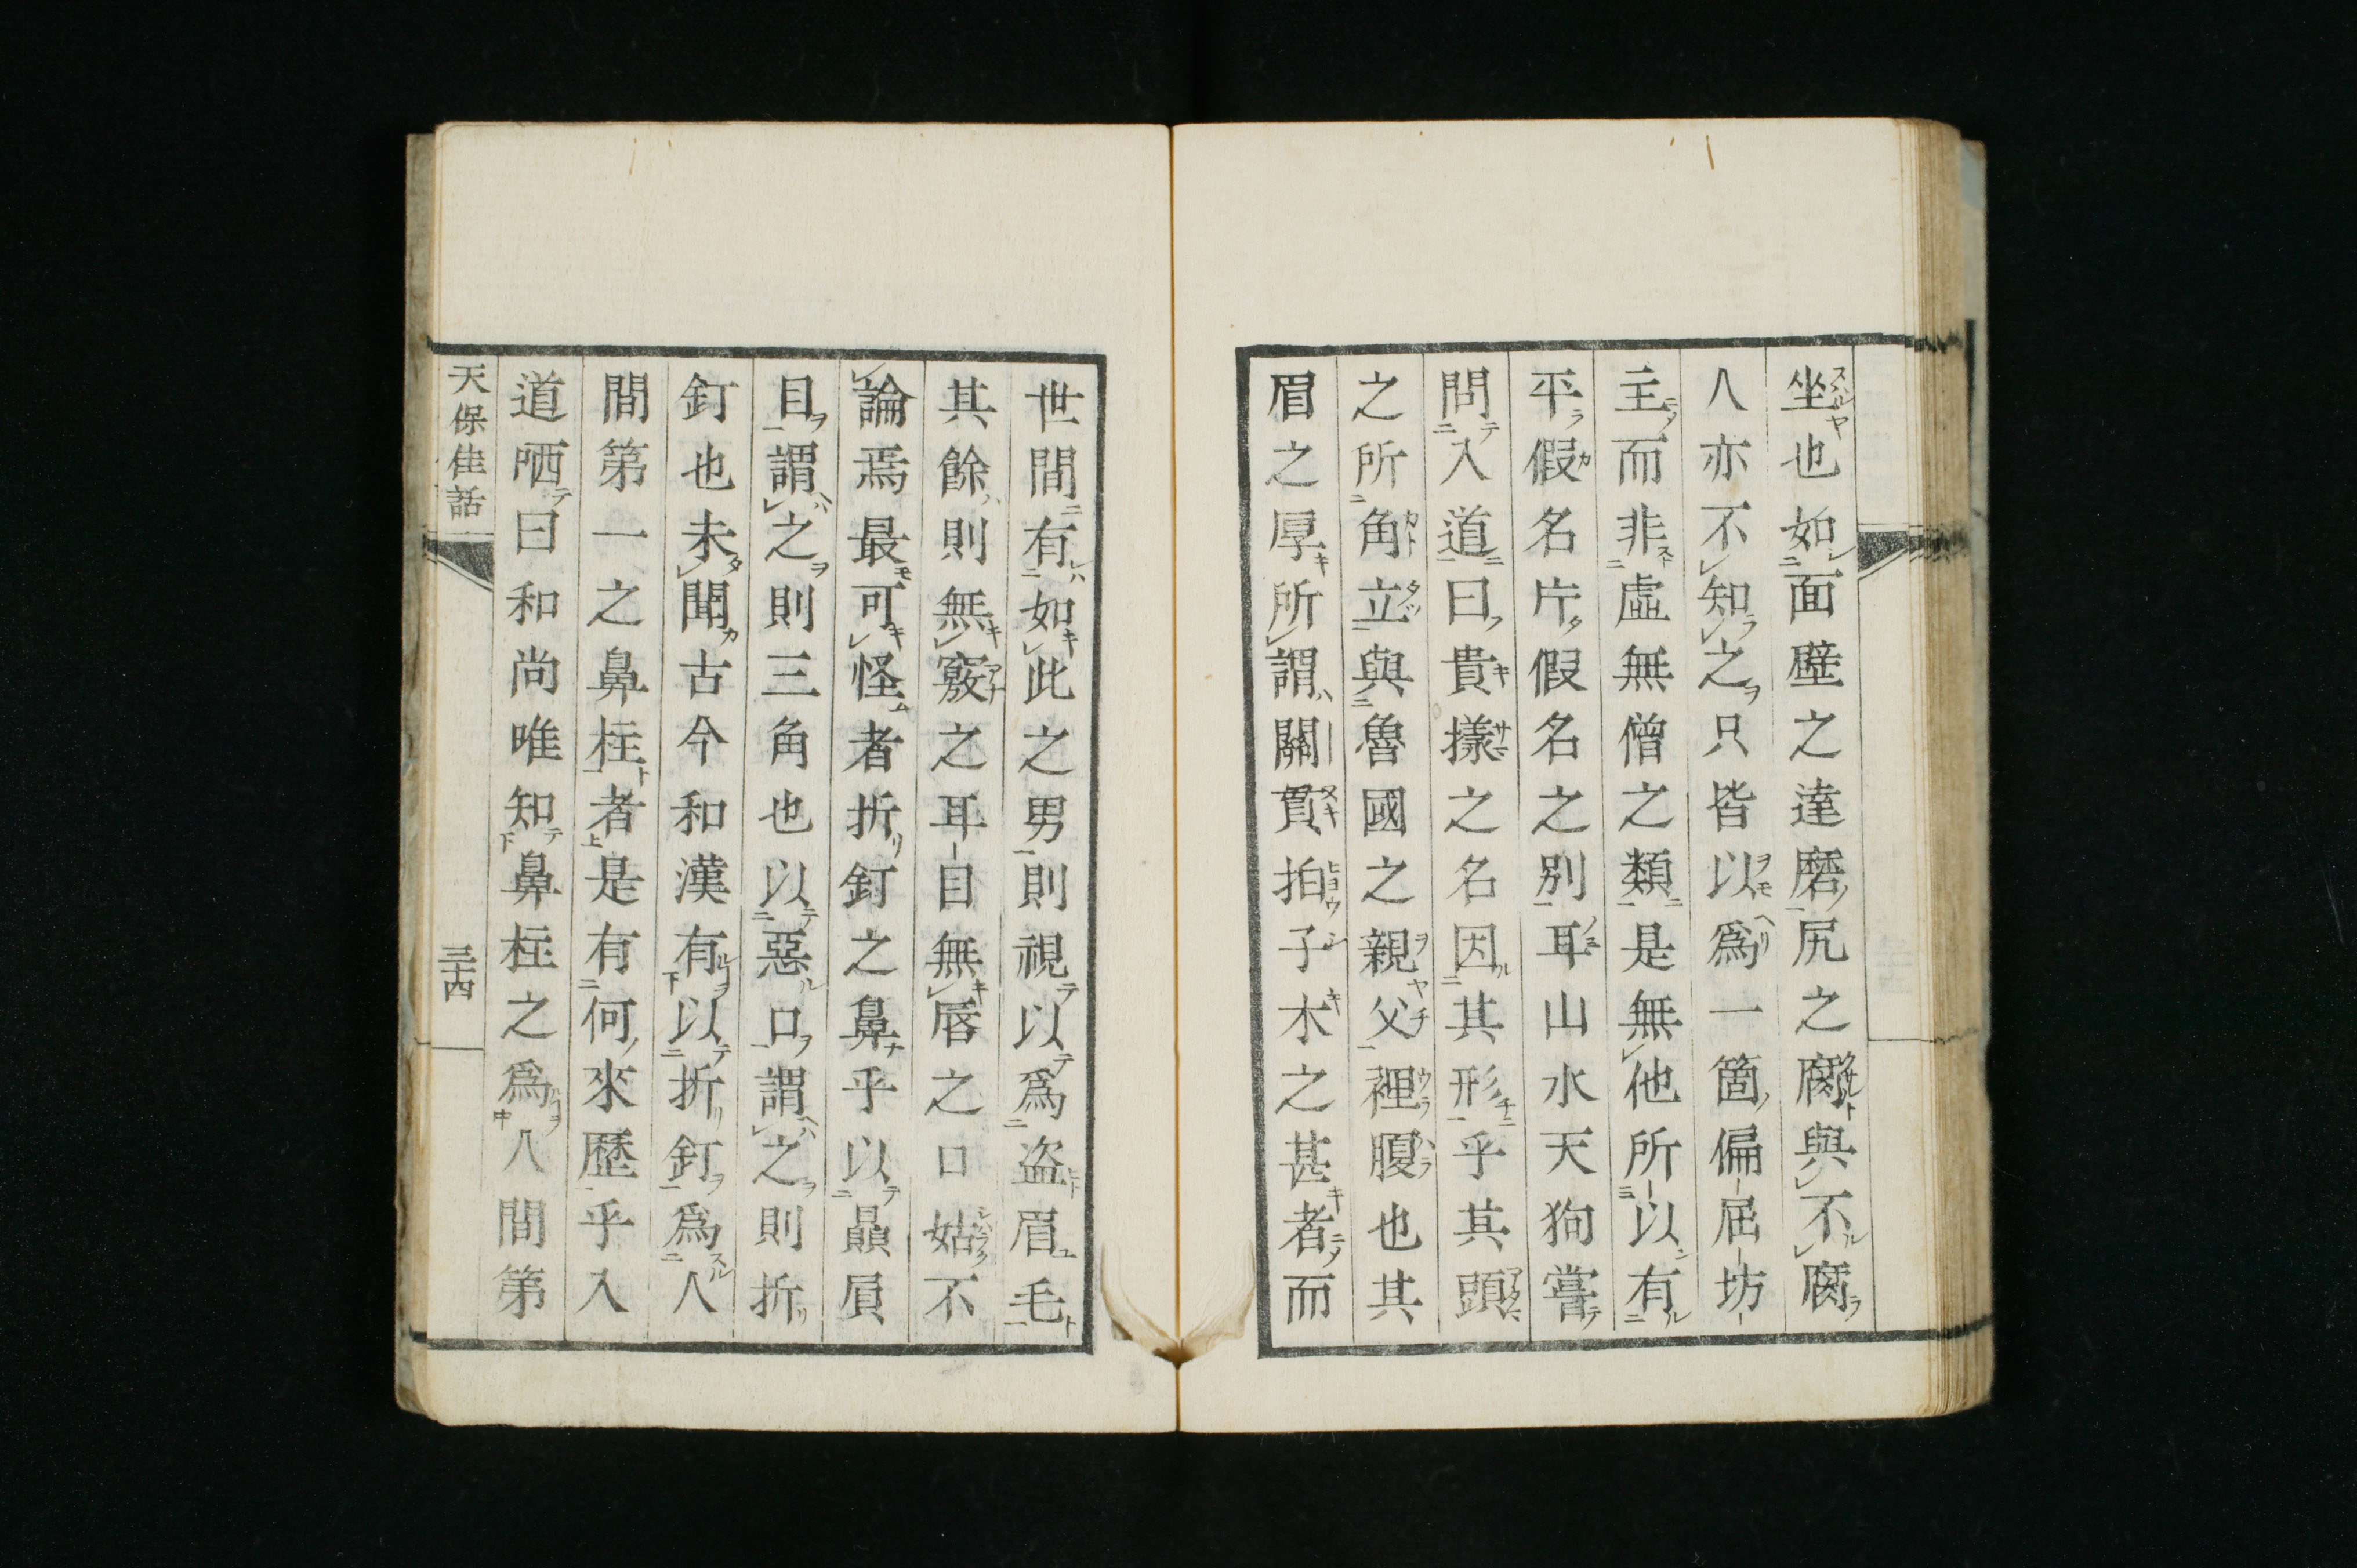 坐也如面壁之達磨尻之腐與不腐
人亦不知之只皆以爲一箇偏屈坊
主而非虛無僧之類是無他所以有
平假名片假名之別耳山水天狗嘗
問入道曰貴樣之名因其形乎其頭
之所角立與魯國之親父裡腹也其
眉之厚所謂關貫拍子木之甚者而
世間有如此之男則視以爲盗眉毛
其餘則無竅之耳目無唇之口姑不
論焉最可怪者折釘之鼻乎以贔屓
目謂之則三角也以惡口謂之則折
釘也未聞古今和漢有以折釘爲人
間第一之鼻柱者是有何來歷乎入
道哂曰和尚唯知鼻柱之爲人間第
天保佳話
三十四